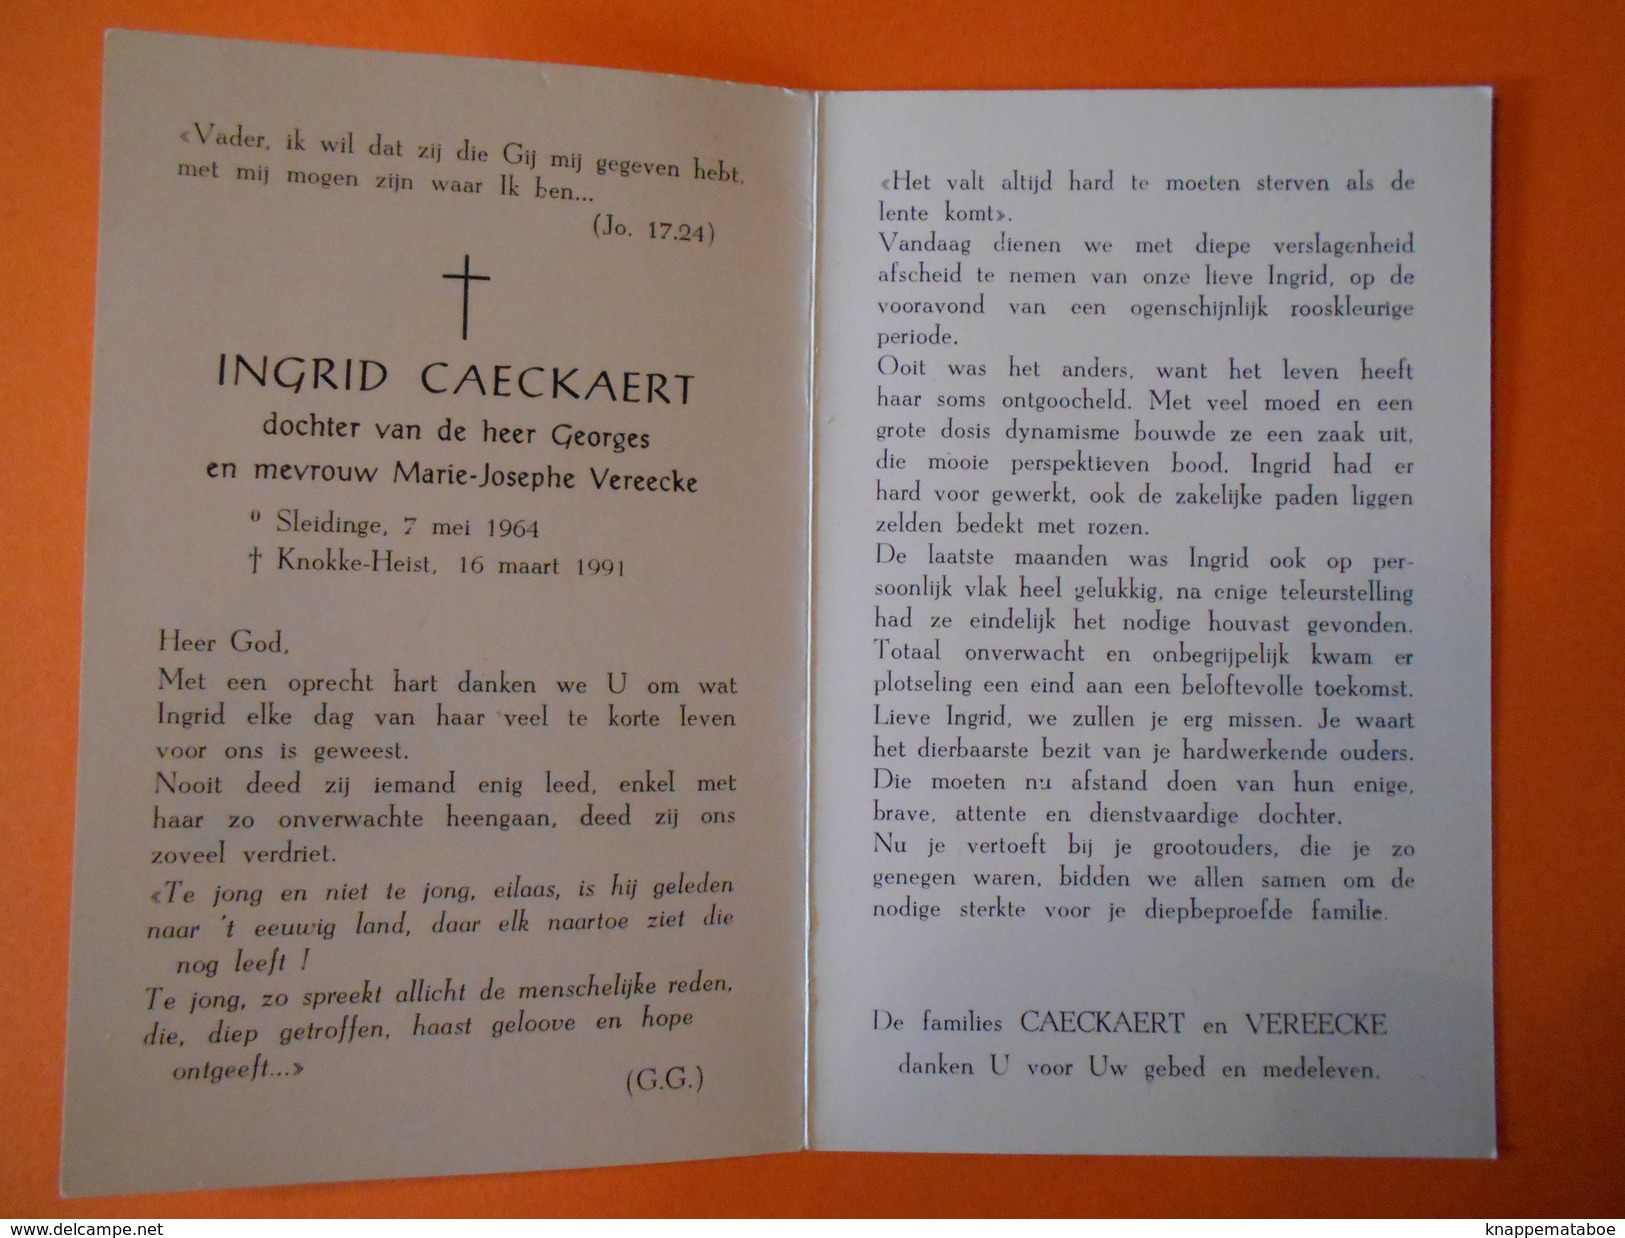 «Vader, ik wil dat zij die Gij mij gegeven hebt,
met mij mogen zijn waar Ik ben...
(Jo. 17.24)
INGRID CAECKAERT
dochter van de heer Georges
en mevrouw Marie-Josephe Vereecke
° Sleidinge, 7 mei 1964
† Knokke-Heist, 16 maart 1991
Heer God,
Met een oprecht hart danken we U om wat
Ingrid elke dag van haar veel te korte leven
voor ons is geweest.
Nooit deed zij iemand enig leed, enkel met
haar zo onverwachte heengaan, deed zij ons
zoveel verdriet.
«Te jong en niet te jong, eilaas, is hij geleden
naar 't eeuwig land, daar elk naartoe ziet die
nog leeft !
Te jong, zo spreekt allicht de menschelijke reden,
die, diep getroffen, haast geloove en hope
ontgeeft...»
(G.G.)
«Het valt altijd hard te moeten sterven als de
lente komt».
Vandaag dienen we met diepe verslagenheid
afscheid te nemen van onze lieve Ingrid, op de
vooravond van een ogenschijnlijk rooskleurige
periode.
Ooit was het anders, want het leven heeft
haar soms ontgoocheld. Met veel moed en een
grote dosis dynamisme bouwde ze een zaak uit,
die mooie perspektieven bood. Ingrid had er
hard voor gewerkt, ook de zakelijke paden liggen
zelden bedekt met rozen.
De laatste maanden was Ingrid ook op per-
soonlijk vlak heel gelukkig, na enige teleurstelling
had ze eindelijk het nodige houvast gevonden.
Totaal onverwacht en onbegrijpelijk kwam er
plotseling een eind aan een beloftevolle toekomst.
Lieve Ingrid, we zullen je erg missen. Je waart
het dierbaarste bezit van je hardwerkende ouders.
Die moeten nu afstand doen van hun enige,
brave, attente en dienstvaardige dochter.
Nu je vertoeft bij je grootouders, die je zo
genegen waren, bidden we allen samen om de
nodige sterkte voor je diepbeproefde familie.
De families CAECKAERT en VEREECKE
danken U voor Uw gebed en medeleven.
www.delcampe.net
knappemataboe